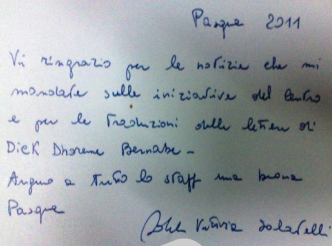 Pasqua 2011
Vi ringrazio per le notizie che mi
mandate sulle iniziative del Centro
e per le Traduzioni delle lettere di
Dick Dhoreme Bernabe -
Auguro a tutto lo staff una buona
Pasqua